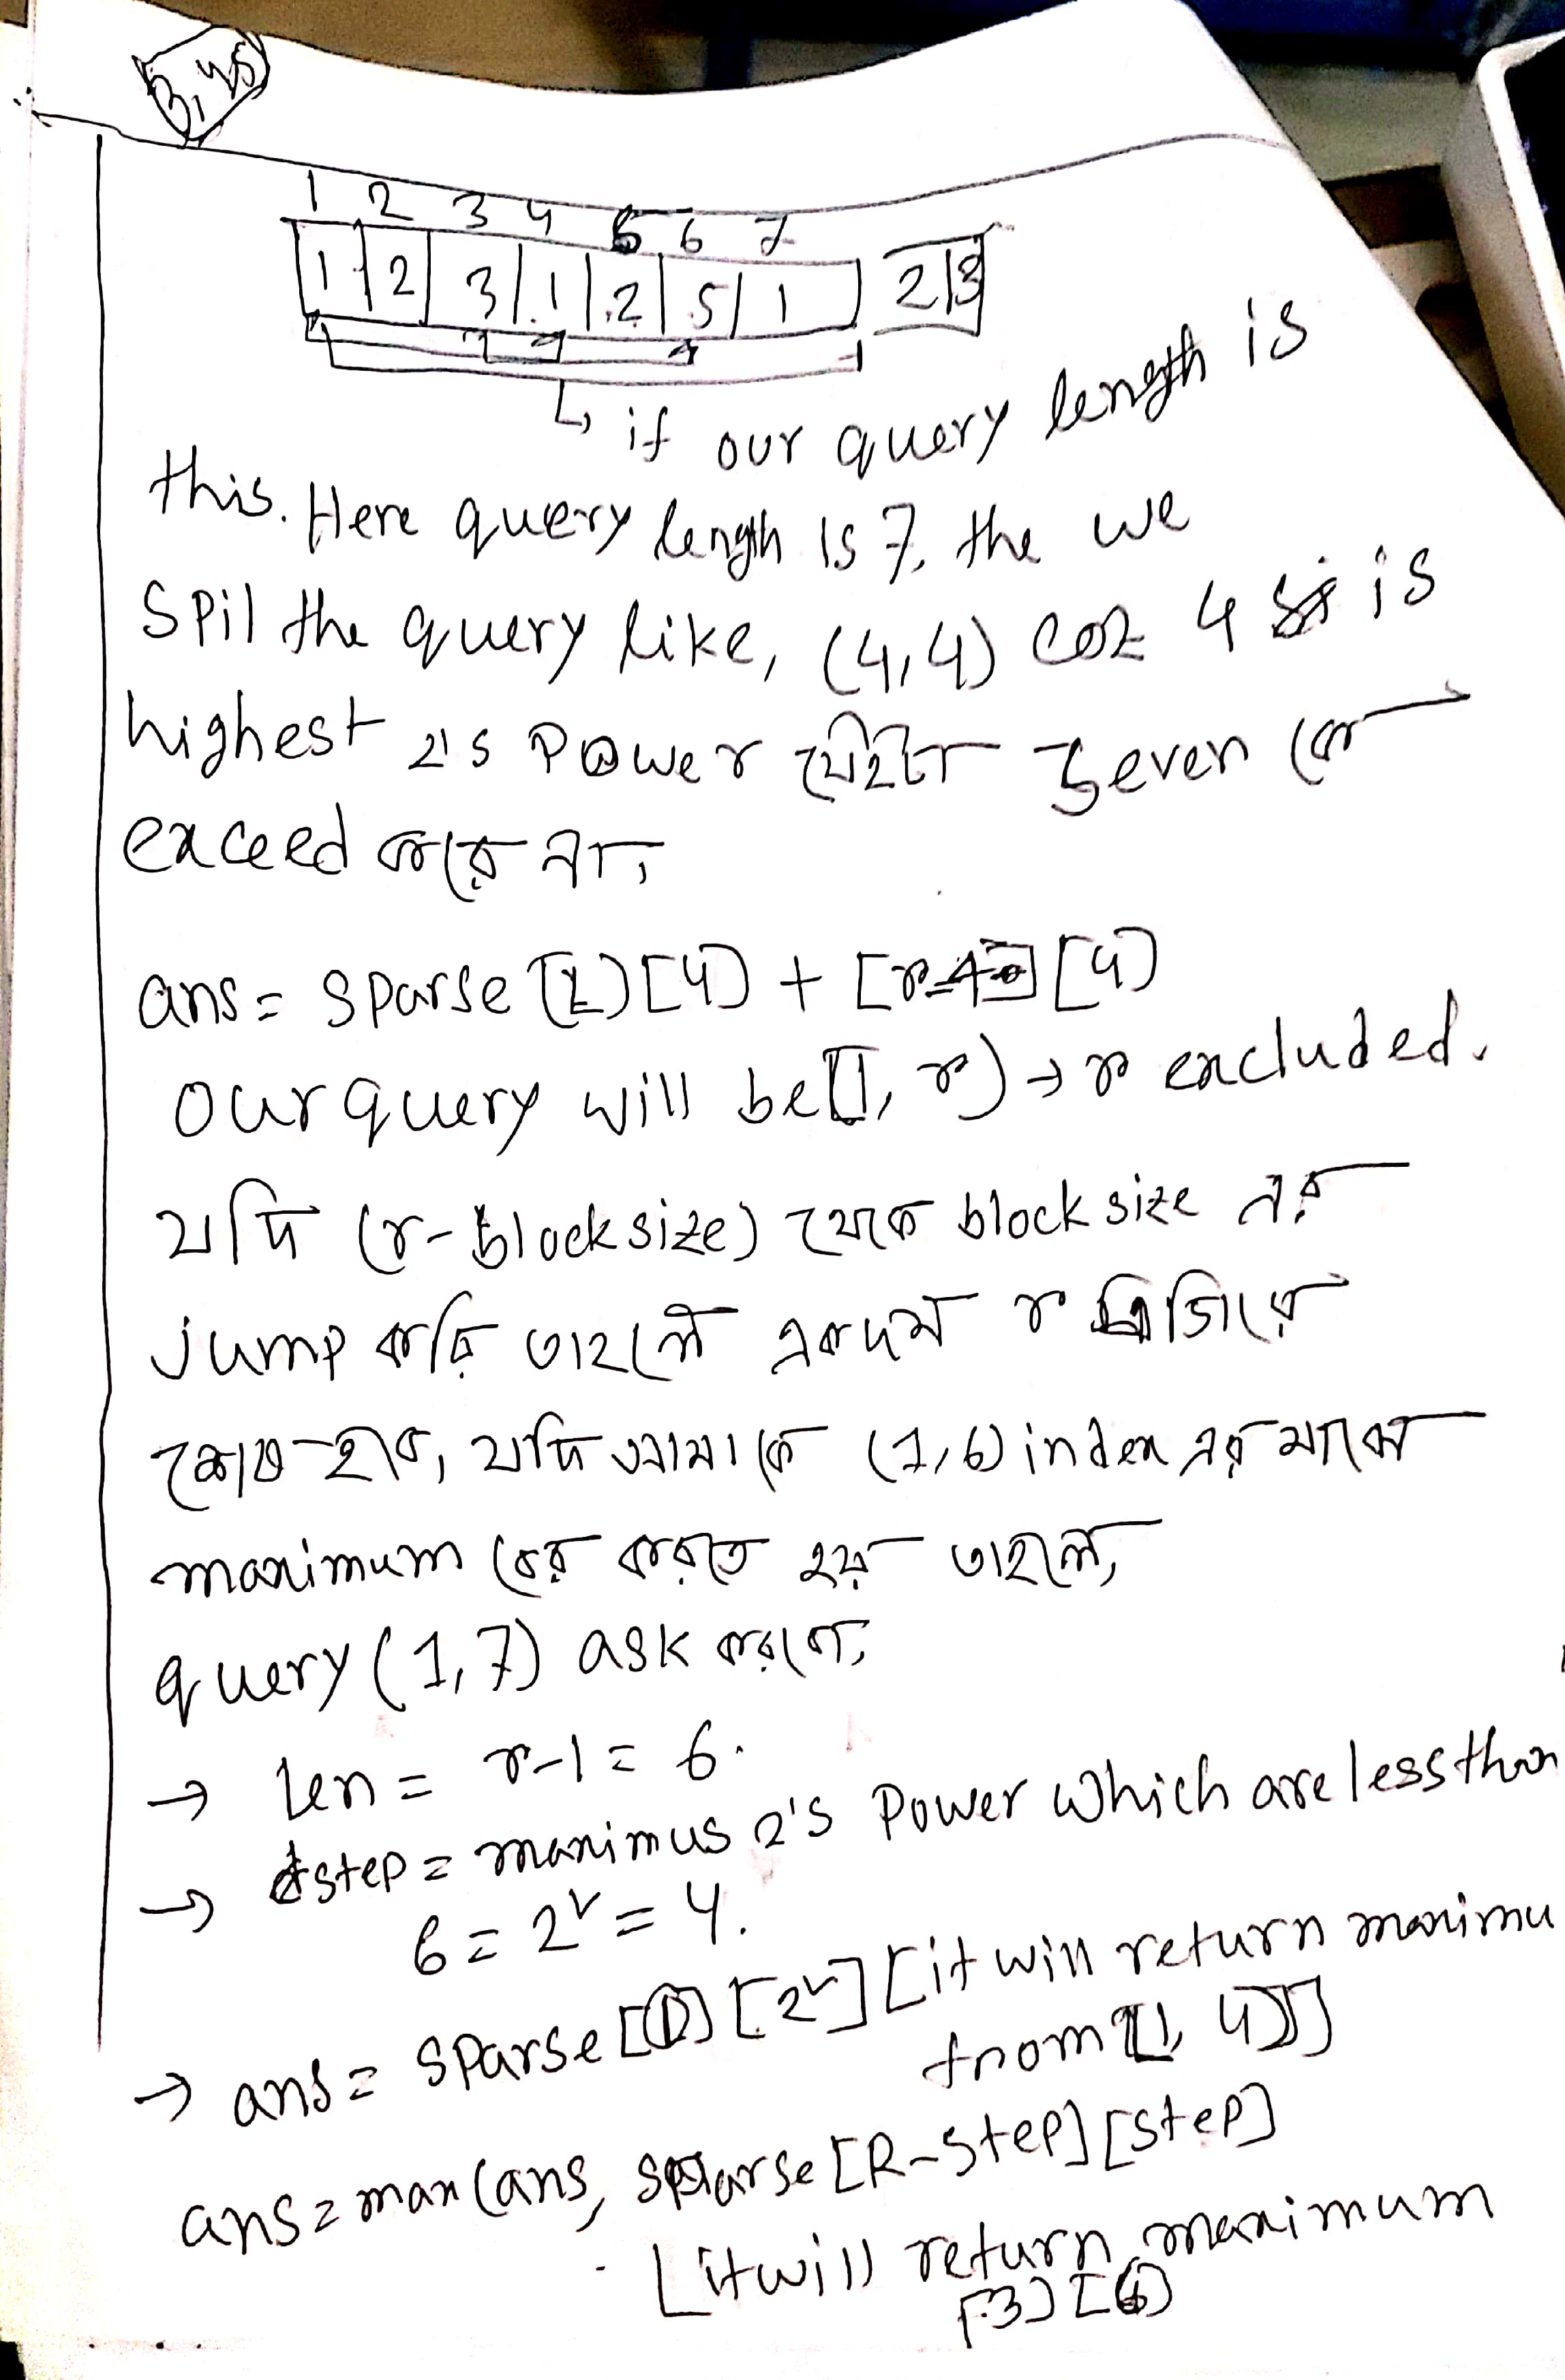 1 2 3 4 5 6 7
1 2 3 1 2 5 1 2 3
↳ if our query length is
this. Here query length is 7, the we
spil the query like, (4,4) coz 4 is
highest 2's power যেইটা seven কে
exceed করে না,
ans = sparse [L][4] + [r-4][4]
our query will be [l, r) → r excluded.
যদি (r-block size) থেকে block size এর
jump করি তাহলে একদম r
যদি আমাকে (1,6) index এর মাঝে
maximum বের করতে হয় তাহলে,
query (1,7) ask করবো,
→ len = r-l = 6.
→ step = maximus 2's power which are less than
6 = 2² = 4.
→ ans = sparse [1] [2²] [it will return maximu
from [1, 4]]
ans = max (ans, sparse [R-step] [step]
[it will return maximum
[3] [6]